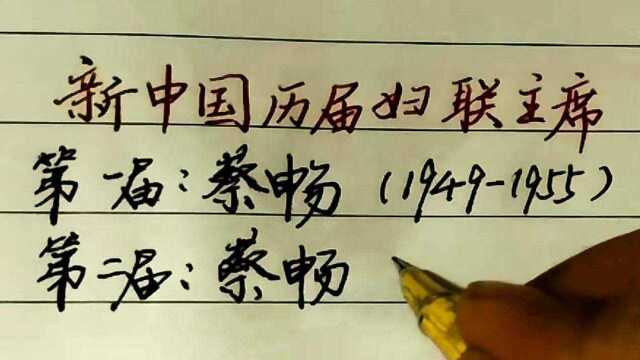 新中国历届妇联主席
第一届：蔡畅（1949-1955）
第二届：蔡畅